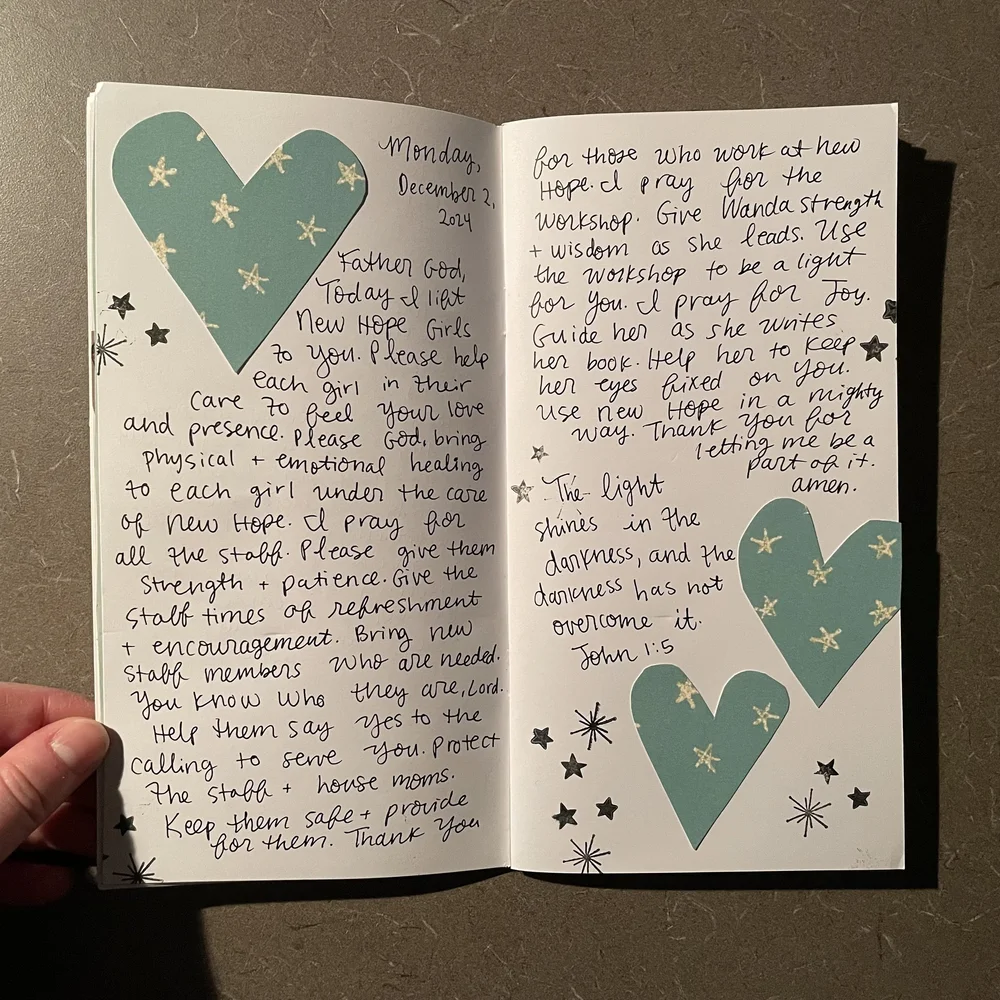 Monday,
December 2,
2024
Father God,
Today I lift
New Hope Girls
to You. Please help
each girl in their
care to feel Your love
and presence. Please God, bring
physical + emotional healing
to each girl under the care
of New Hope. I pray for
all the staff. Please give them
strength + patience. Give the
staff times of refreshment
+ encouragement. Bring new
staff members who are needed.
You know who they are, Lord.
Help them say yes to the
calling to serve You. Protect
the staff + house moms.
Keep them safe + provide
for them. Thank You
for those who work at New
Hope. I pray for the
workshop. Give Wanda strength
+ wisdom as she leads. Use
the workshop to be a light
for You. I pray for Joy.
Guide her as she writes
her book. Help her to keep
her eyes fixed on You.
Use New Hope in a mighty
way. Thank You for
letting me be a
part of it.
amen.
The light
shines in the
darkness, and the
darkness has not
overcome it.
John 1:5